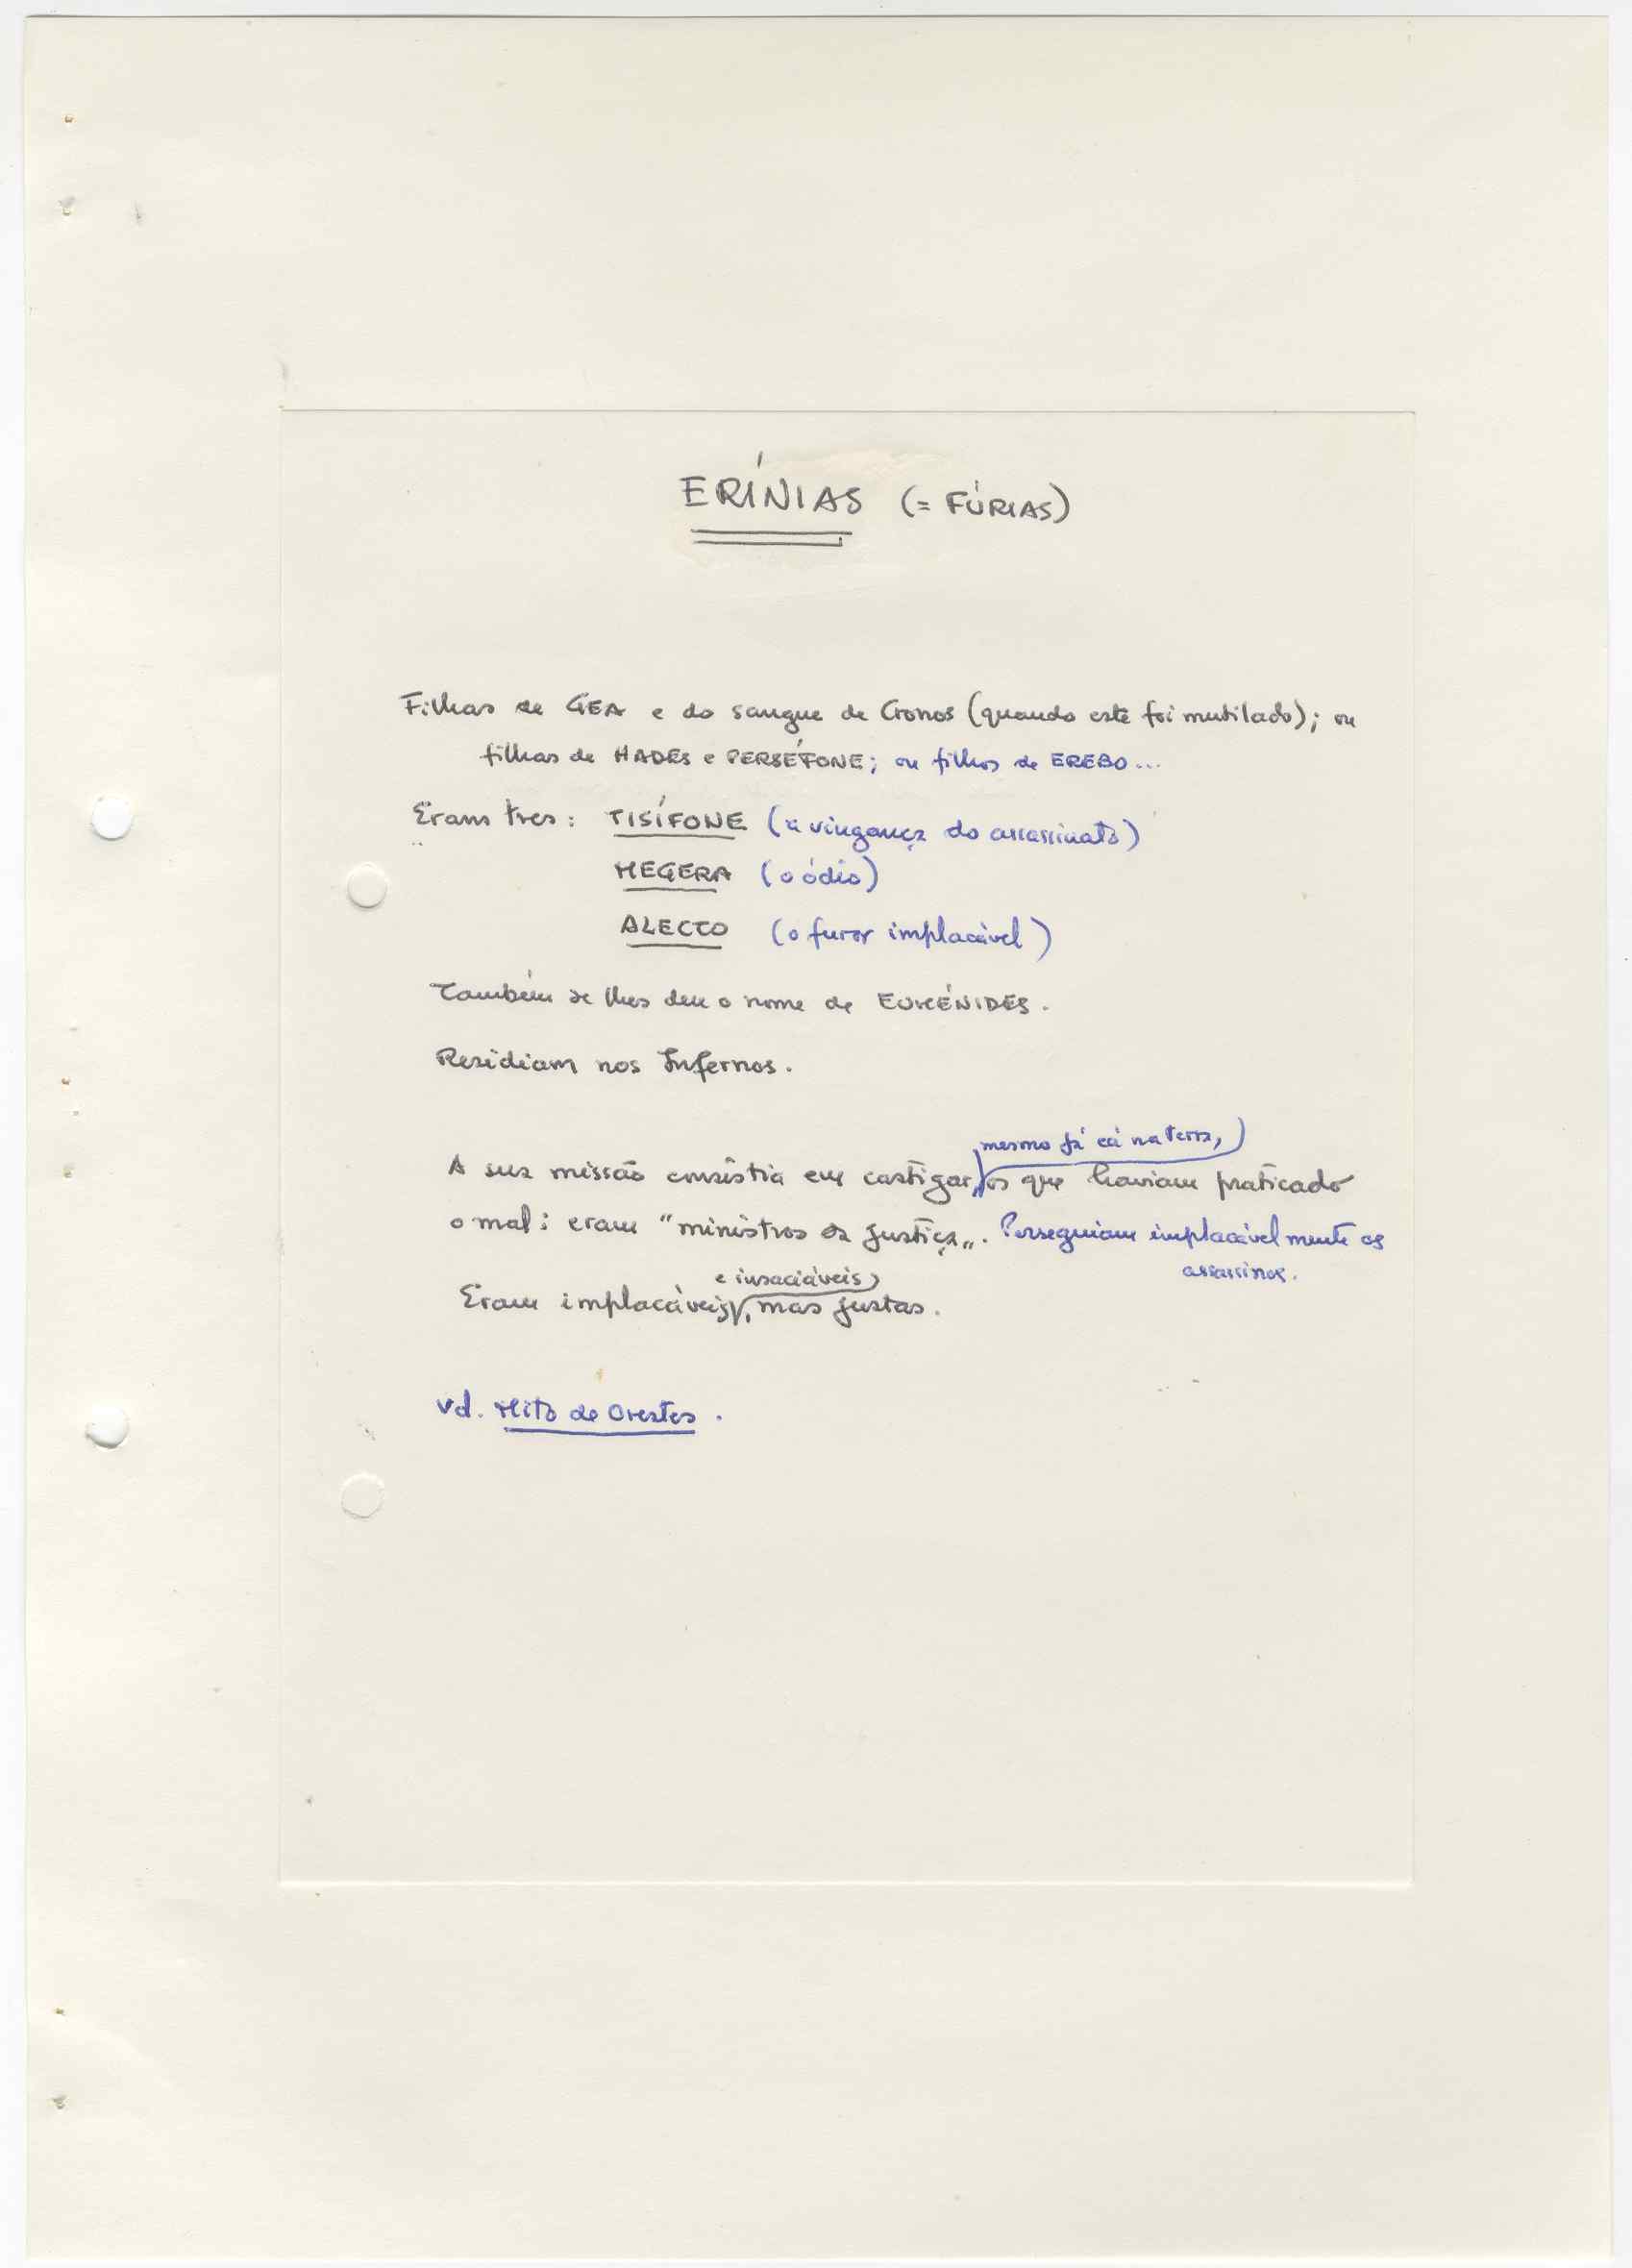 ERÍNIAS (= FÚRIAS)
Filhas de GEA e do sangue de Cronos (quando este foi mutilado); ou
filhas de HADES e PERSÉFONE; ou filhas de EREBO...
Eram tres: TISÍFONE (a vingança do assassinato)
MEGERA (o ódio)
ALECTO (o furor implacável)
Também se lhes deu o nome de EUMÉNIDES.
Residiam nos Infernos.
mesmo já cá na terra,
A sua missão consistia em castigar, os que haviam praticado
o mal: eram "ministros da justiça". Perseguiam implacavelmente os
assassinos.
e insaciáveis
Eram implacáveis, mas justas.
Vd. Mito de Orestes.